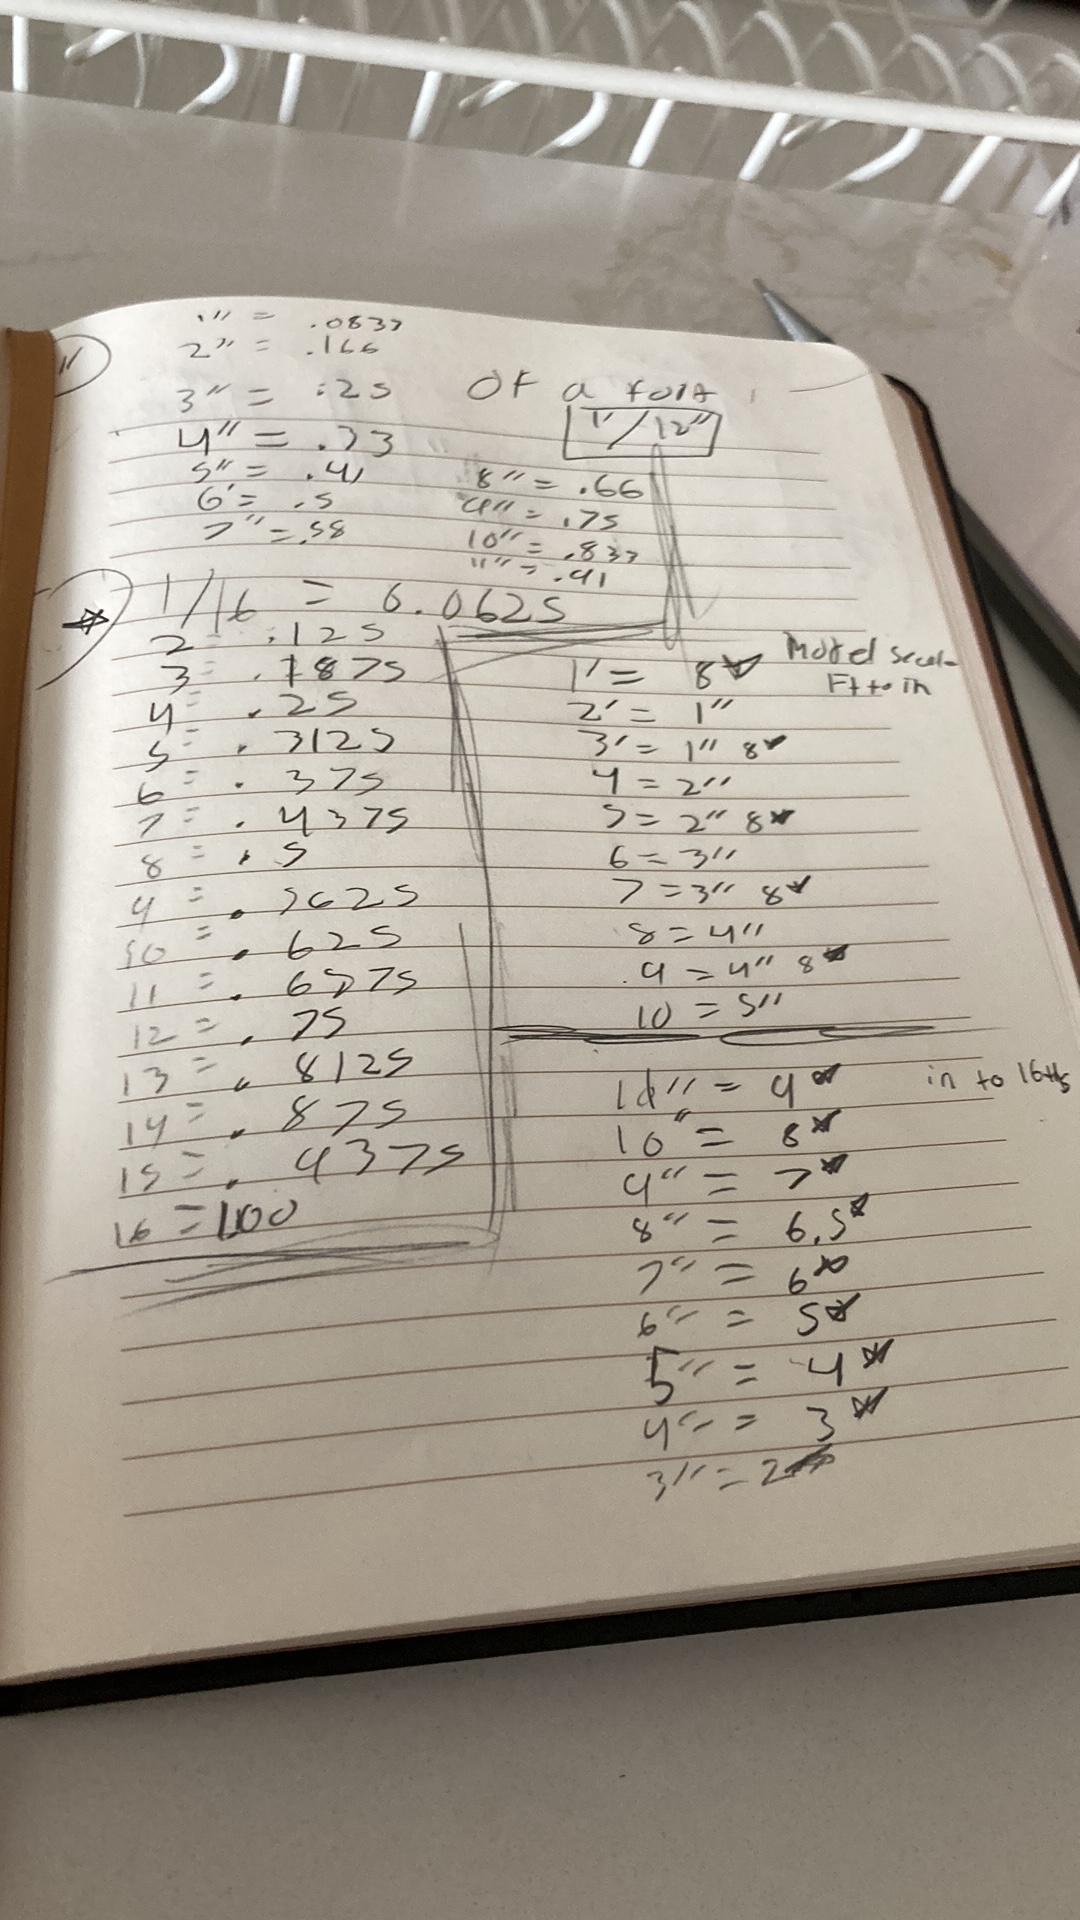 1" = .0833
2" = .166
3" = .25
of a foot
1'/12"
4" = .33
5" = .41
6' = .5
7" = .58
8" = .66
9" = .75
10" = .833
11" = .91
1/16 = 0.0625
2 = .125
3 = .1875
4 = .25
5 = .3125
6 = .375
7 = .4375
8 = .5
9 = .5625
10 = .625
11 = .6875
12 = .75
13 = .8125
14 = .875
15 = .9375
16 = 1.00
Model
Ft to in
1' = 8*
2' = 1"
3' = 1" 8*
4 = 2"
5 = 2" 8*
6 = 3"
7 = 3" 8*
8 = 4"
9 = 4" 8*
10 = 5"
in to 16ths
11" = 9*
10" = 8*
9" = 7*
8" = 6.5*
7" = 6*
6" = 5*
5" = 4*
4" = 3*
3" = 2*